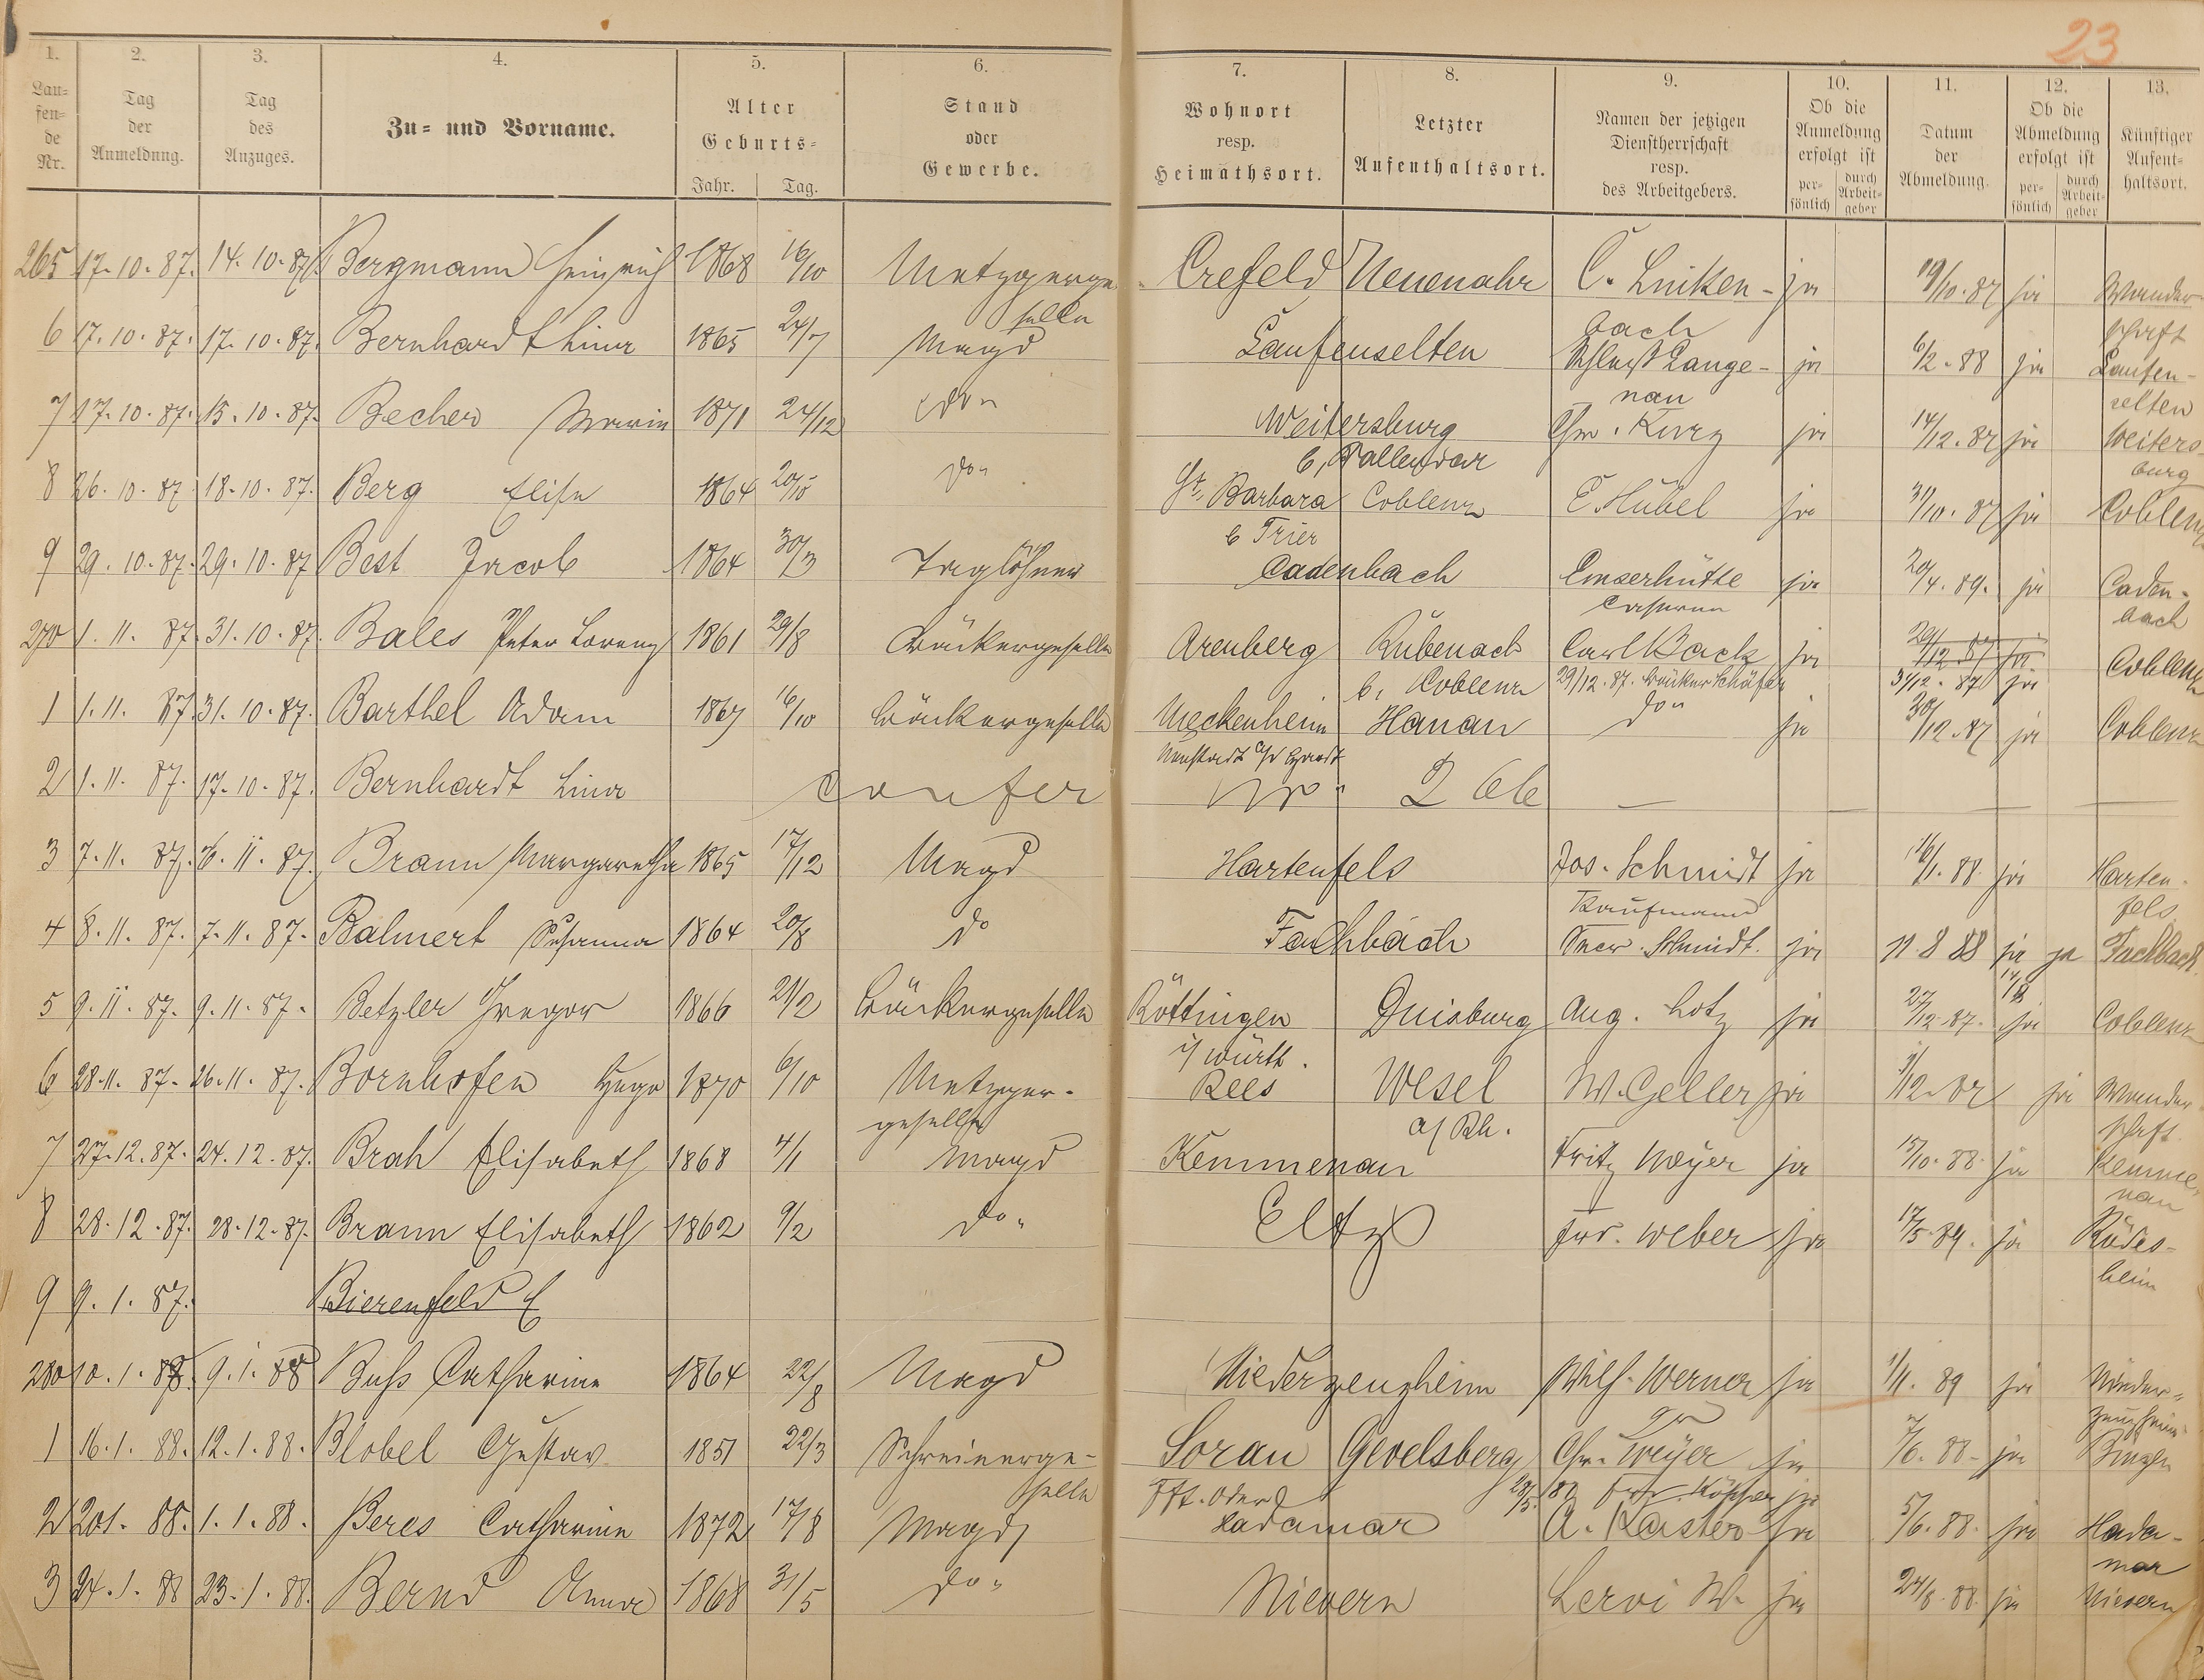 23
1. 2. 3. 4. 5. 6. 7. 8. 9. 10. 11. 12. 13.
Lau-fen-de Nr. Tag der Anmeldung. Tag des Anzuges. Zu- und Vorname. Alter Geburts- Jahr. Tag. Stand oder Gewerbe. Wohnort resp. Heimathsort. Letzter Aufenthaltsort. Namen der jetzigen Dienstherrschaft resp. des Arbeitgebers. Ob die Anmeldung erfolgt ist per-sönlich durch Arbeit-geber Datum der Abmeldung. Ob die Abmeldung erfolgt ist per-sönlich durch Arbeit-geber Künftiger Aufent-haltsort.
265 17.10.87. 14.10.87. Bergmann Heinrich 1868 16/10 Metzgerge Crefeld Neuenahr C. Linken- ja 19/10.87 ja Wander-
selle bach schaft
6 17.10.87. 17.10.87. Bernhardt Lina 1865 24/7 Magd Laufenselten Lange- ja 6/2.88 ja Laufen-
nau selten
7 17.10.87. 15.10.87. Becher Maria 1871 24/12 do " Weitersburg Chr. Kurz ja 14/12.87 ja Weiters-
b. Vallendar burg
8 26.10.87 18.10.87. Berg Elise 1864 do " St. Barbara Coblenz E. Hübel ja 31/10.87 ja Coblenz
b Trier
9 29.10.87. 29.10.87 Best Jacob 1864 30/3 Taglöhner Cadenbach Emserhütte ja 20/4.89. ja Caden-
Caserne bach
270 1.11.87. 31.10.87. Bales Peter Lorenz 1861 29/8 Bäckergeselle Arenberg Rübenach Carl Back ja 29/12.87 ja Coblenz
b. Coblenz 29/12.87. Bäcker Schäfer 31/12.87 ja
1 1.11.87. 31.10.87. Barthel Adam 1867 16/10 Bäckergeselle Meckenheim Hanau do " ja 30/12.87 ja Coblenz
Neustadt a/d Hardt
2 1.11.87. 17.10.87. Bernhardt Lina confer No " 266 —
3 7.11.87. 6.11.87. Braun Margaretha 1865 17/12 Magd Hartenfels Jos. Schmidt ja 16/1.88. ja Harten-
Kaufmann fels
4 8.11.87. 7.11.87. Balmert Susanna 1864 20/8 do Fachbach Schmidt. ja 11.8 88 ja ja Fachbach.
5 9.11.87. 9.11.87. Betzler Gregor 1866 21/2 Bäckergeselle Röttingen Duisburg Aug. Lotz ja 27/12.87. ja Coblenz
i/ Württ.
6 28.11.87. 26.11.87. Bornhofen Hugo 1870 6/10 Metzger- Rees Wesel W. Geller ja ja Wander-
geselle a/ Rh. schaft.
7 27.12.87. 24.12.87. Brah Elisabeth 1868 4/1 Magd Kemmenau Fritz Meyer ja 15/10.88. ja Kemme-
nau
8 28.12.87. 28.12.87. Braun Elisabeth 1862 9/2 do " Eltz Weber ja 17/5.89. ja Rüdes-
heim
9 9.1.87. Bierenfeld E
280 10.1.88. 9.1.88 Buss Catharine 1864 22/8 Magd Niederzeuzheim Wilh. Werner ja 1/11.89 ja Nieder-
zeuzheim
1 16.1.88. 12.1.88. Blobel Gustav 1851 22/3 Schreinerge- Sorau Gevelsberg Chr. Meyer ja 7/6.88 ja Bingen
selle Fft. Oder
2 20.1.88. 1.1.88. Beres Catharine 1872 17/8 Magd Hadamar A. Kaster ja 5/6.88. ja Hada-
mar
3 24.1.88 23.1.88. Bernd Anna 1868 31/5 do " Nievern Leroi W. ja 24/8.88. ja Nievern